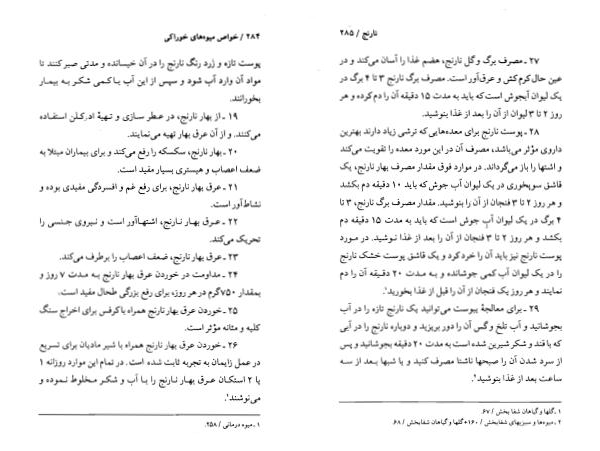 ۲۸۴ / خواص میوه‌های خوراکی
پوست تازه و زرد رنگ نارنج را در آن خیسانده و مدتی صبر کنند تا
مواد آن وارد آب شود و سپس از این آب با کمی شکر به بیمار
بخورانند.
۱۹ ـ از بهار نارنج، در عطر سازی و تهیهٔ ادرکلن استفاده
می‌کنند. و از آن عرق بهار تهیه می‌نمایند.
۲۰ ـ بهار نارنج، سکسکه را رفع می‌کند و برای بیماران مبتلا به
ضعف اعصاب و هیستری بسیار مفید است.
۲۱ ـ عرق بهار نارنج، برای رفع غم و افسردگی مفیدی بوده و
نشاط‌آور است.
۲۲ ـ عرق بهار نارنج، اشتهاآور است و نیروی جنسی را
تحریک می‌کند.
۲۳ ـ عرق بهار نارنج، ضعف اعصاب را برطرف می‌کند.
۲۴ ـ مداومت در خوردن عرق بهار نارنج به مدت ۷ روز و
بمقدار ۷۵۰گرم در هر روز، برای رفع بزرگی طحال مفید است.
۲۵ ـ خوردن عرق بهار نارنج همراه با کرفس برای اخراج سنگ
کلیه و مثانه مؤثر است.
۲۶ ـ خوردن عرق بهار نارنج همراه با شیر مادیان برای تسریع
در عمل زایمان به تجربه ثابت شده است. در تمام این موارد روزانه ۱
یا ۲ استکان عرق بهار نارنج را با آب و شکر مخلوط نموده و
می‌نوشند¹.
۱ ـ میوه درمانی / ۲۵۸.
نارنج / ۲۸۵
۲۷ ـ مصرف برگ و گل نارنج، هضم غذا را آسان می‌کند و در
عین حال کرم‌کش و عرق‌آور است. مصرف برگ نارنج ۳ تا ۴ برگ در
یک لیوان آبجوش است که باید به مدت ۱۵ دقیقه آن را دم کرده و هر
روز ۲ تا ۳ لیوان از آن را بعد از غذا بنوشید.
۲۸ ـ پوست نارنج برای معده‌هایی که ترشی زیاد دارند بهترین
داروی مؤثر می‌باشد، مصرف آن در این مورد معده را تقویت می‌کند
و اشتها را باز می‌گرداند. در موارد فوق مقدار مصرف بهار نارنج، یک
قاشق سوپخوری در یک لیوان آب جوش است که باید ۱۰ دقیقه دم بکشد
و هر روز ۲ تا ۳ فنجان از آن را بنوشید. مقدار مصرف برگ نارنج ۳ تا
۴ برگ در یک لیوان آب جوش است که باید به مدت ۱۵ دقیقه دم
بکشد و هر روز ۲ تا ۳ فنجان از آن را بعد از غذا بنوشید. در مورد
پوست نارنج نیز باید آن را خرد کرد و یک قاشق پوست خشک نارنج
را در یک لیوان آب کمی جوشانده و به مدت ۲۰ دقیقه آن را دم
نمایند و هر روز یک فنجان از آن را قبل از غذا بخورید¹.
۲۹ ـ برای معالجهٔ یبوست می‌توانید یک نارنج تازه را در آب
بجوشانید و آب تلخ و گس آن را دور بریزید و دوباره نارنج را در آبی
که با قند و شکر شیرین شده است به مدت ۲۰ دقیقه بجوشانید و پس
از سرد شدن آن را صبحها ناشتا مصرف کنید و یا شبها بعد از سه
ساعت بعد از غذا بنوشید².
۱ ـ گلها و گیاهان شفا بخش / ۶۷.
۲ ـ میوه‌ها و سبزیهای شفابخش / ۱۶۰+گلها و گیاهان شفابخش / ۶۸.